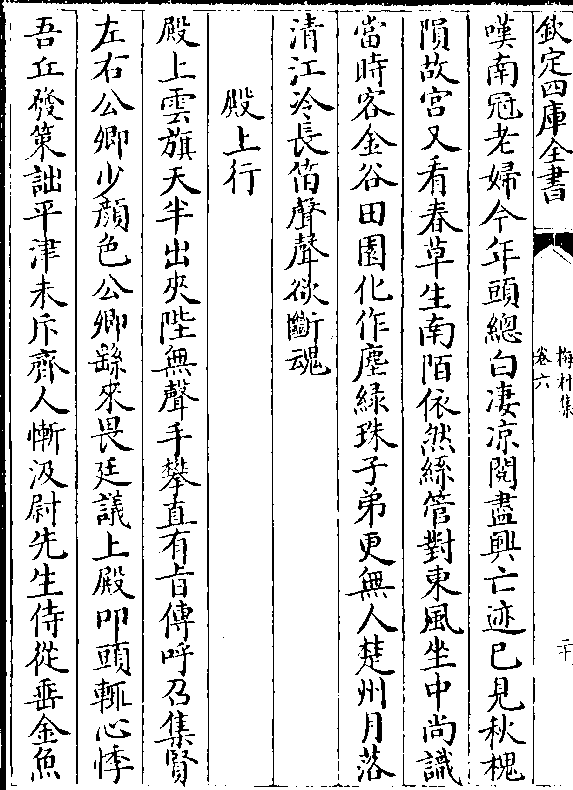 欽定四庫全書
梅村集
卷六
二十
嘆南冠老婦今年頭總白淒凉閱盡興亡迹已見秋槐
隕故宫又看春草生南陌依然絲管對東風坐中尚識
當時客金谷田園化作塵緑珠子弟更無人楚州月落
清江冷長笛聲聲欲斷魂
殿上行
殿上雲旗天半出夾陛無聲手攀直有㫖傳呼召集賢
左右公卿少顔色公卿繇來畏廷議上殿叩頭輒心悸
吾丘發策詘平津未斥齊人慚汲尉先生侍從垂金魚